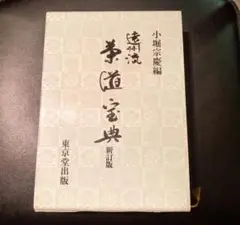 小堀宗慶編
遠州流
茶道宝典
新訂版
東京堂出版